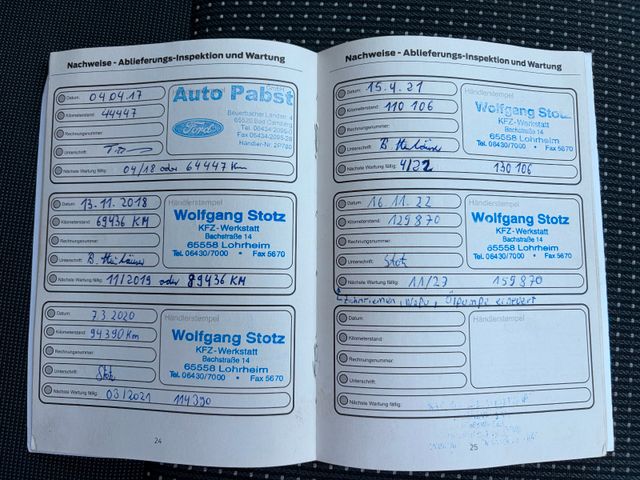 Nachweise - Ablieferungs-Inspektion und Wartung
Datum: 04.04.17
Kilometerstand: 44447
Rechnungsnummer:
Unterschrift:
Nächste Wartung fällig: 04/18 oder 64447 Km
Auto Pabst
Ford
Beuerbacher Landstr. 4
65520 Bad Camberg
Tel. 06434/2095-0
Fax 06434/2095-28
Händler-Nr. 2P780
Datum: 13.11.2018
Kilometerstand: 69436 KM
Rechnungsnummer:
Unterschrift:
Nächste Wartung fällig: 11/2019 oder 89436 KM
Händlerstempel
Wolfgang Stotz
KFZ-Werkstatt
Bachstraße 14
65558 Lohrheim
Tel. 06430/7000 • Fax 5670
Datum: 7.3.2020
Kilometerstand: 94390 Km
Rechnungsnummer:
Unterschrift: Stotz
Nächste Wartung fällig: 03/2021 114390
Händlerstempel
Wolfgang Stotz
KFZ-Werkstatt
Bachstraße 14
65558 Lohrheim
Tel. 06430/7000 • Fax 5670
24
Nachweise - Ablieferungs-Inspektion und Wartung
Datum: 15.4.21
Kilometerstand: 110 106
Rechnungsnummer:
Unterschrift:
Nächste Wartung fällig: 4/22 130 106
Händlerstempel
Wolfgang Stotz
KFZ-Werkstatt
Bachstraße 14
65558 Lohrheim
Tel. 06430/7000 • Fax 5670
Datum: 16.11.22
Kilometerstand: 129870
Rechnungsnummer:
Unterschrift: Stotz
Nächste Wartung fällig: 11/23 159870
Händlerstempel
Wolfgang Stotz
KFZ-Werkstatt
Bachstraße 14
65558 Lohrheim
Tel. 06430/7000 • Fax 5670
Zahnriemen, WaPu, Ölpumpe erneuert
Datum:
Kilometerstand:
Rechnungsnummer:
Unterschrift:
Nächste Wartung fällig:
Händlerstempel
25